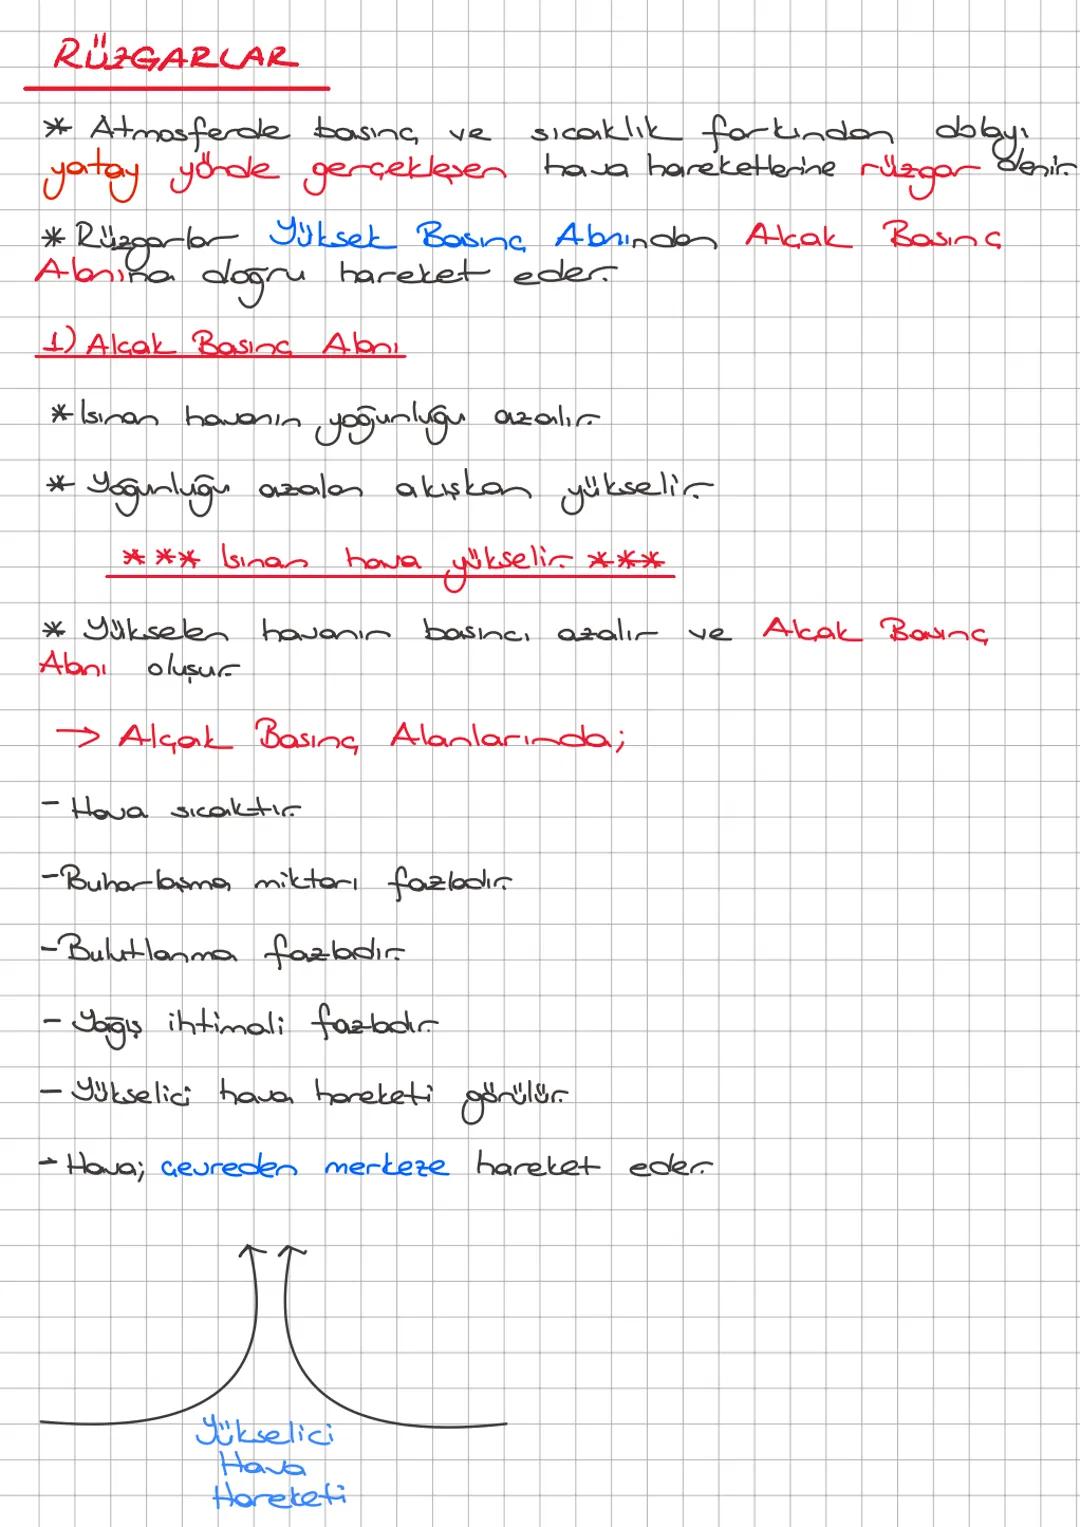 RÜZGARLAR
* Atmosferde basınç ve sıcaklık farkından dolayı
yatay yönde gerçekleşen hava hareketlerine rüzgar denir.
* Rüzgarlar Yüksek Basınç Alanından Alçak Basınç
Alanına doğru hareket eder.
1) Alçak Basınç Alanı
* Isınan havanın yoğunluğu azalır.
* Yoğunluğu azalan akışkan yükselir.
*** Isınan hava yükselir ***
* Yükselen havanın basıncı azalır ve Alçak Basınç
Alanı oluşur.
→ Alçak Basınç Alanlarında;
- Hava sıcaktır.
- Buharlaşma miktarı fazladır.
- Bulutlanma fazladır.
- Yağış ihtimali fazladır.
- Yükselici hava hareketi görülür.
- Hava; çevreden merkeze hareket eder.
Yükselici
Hava
Hareketi